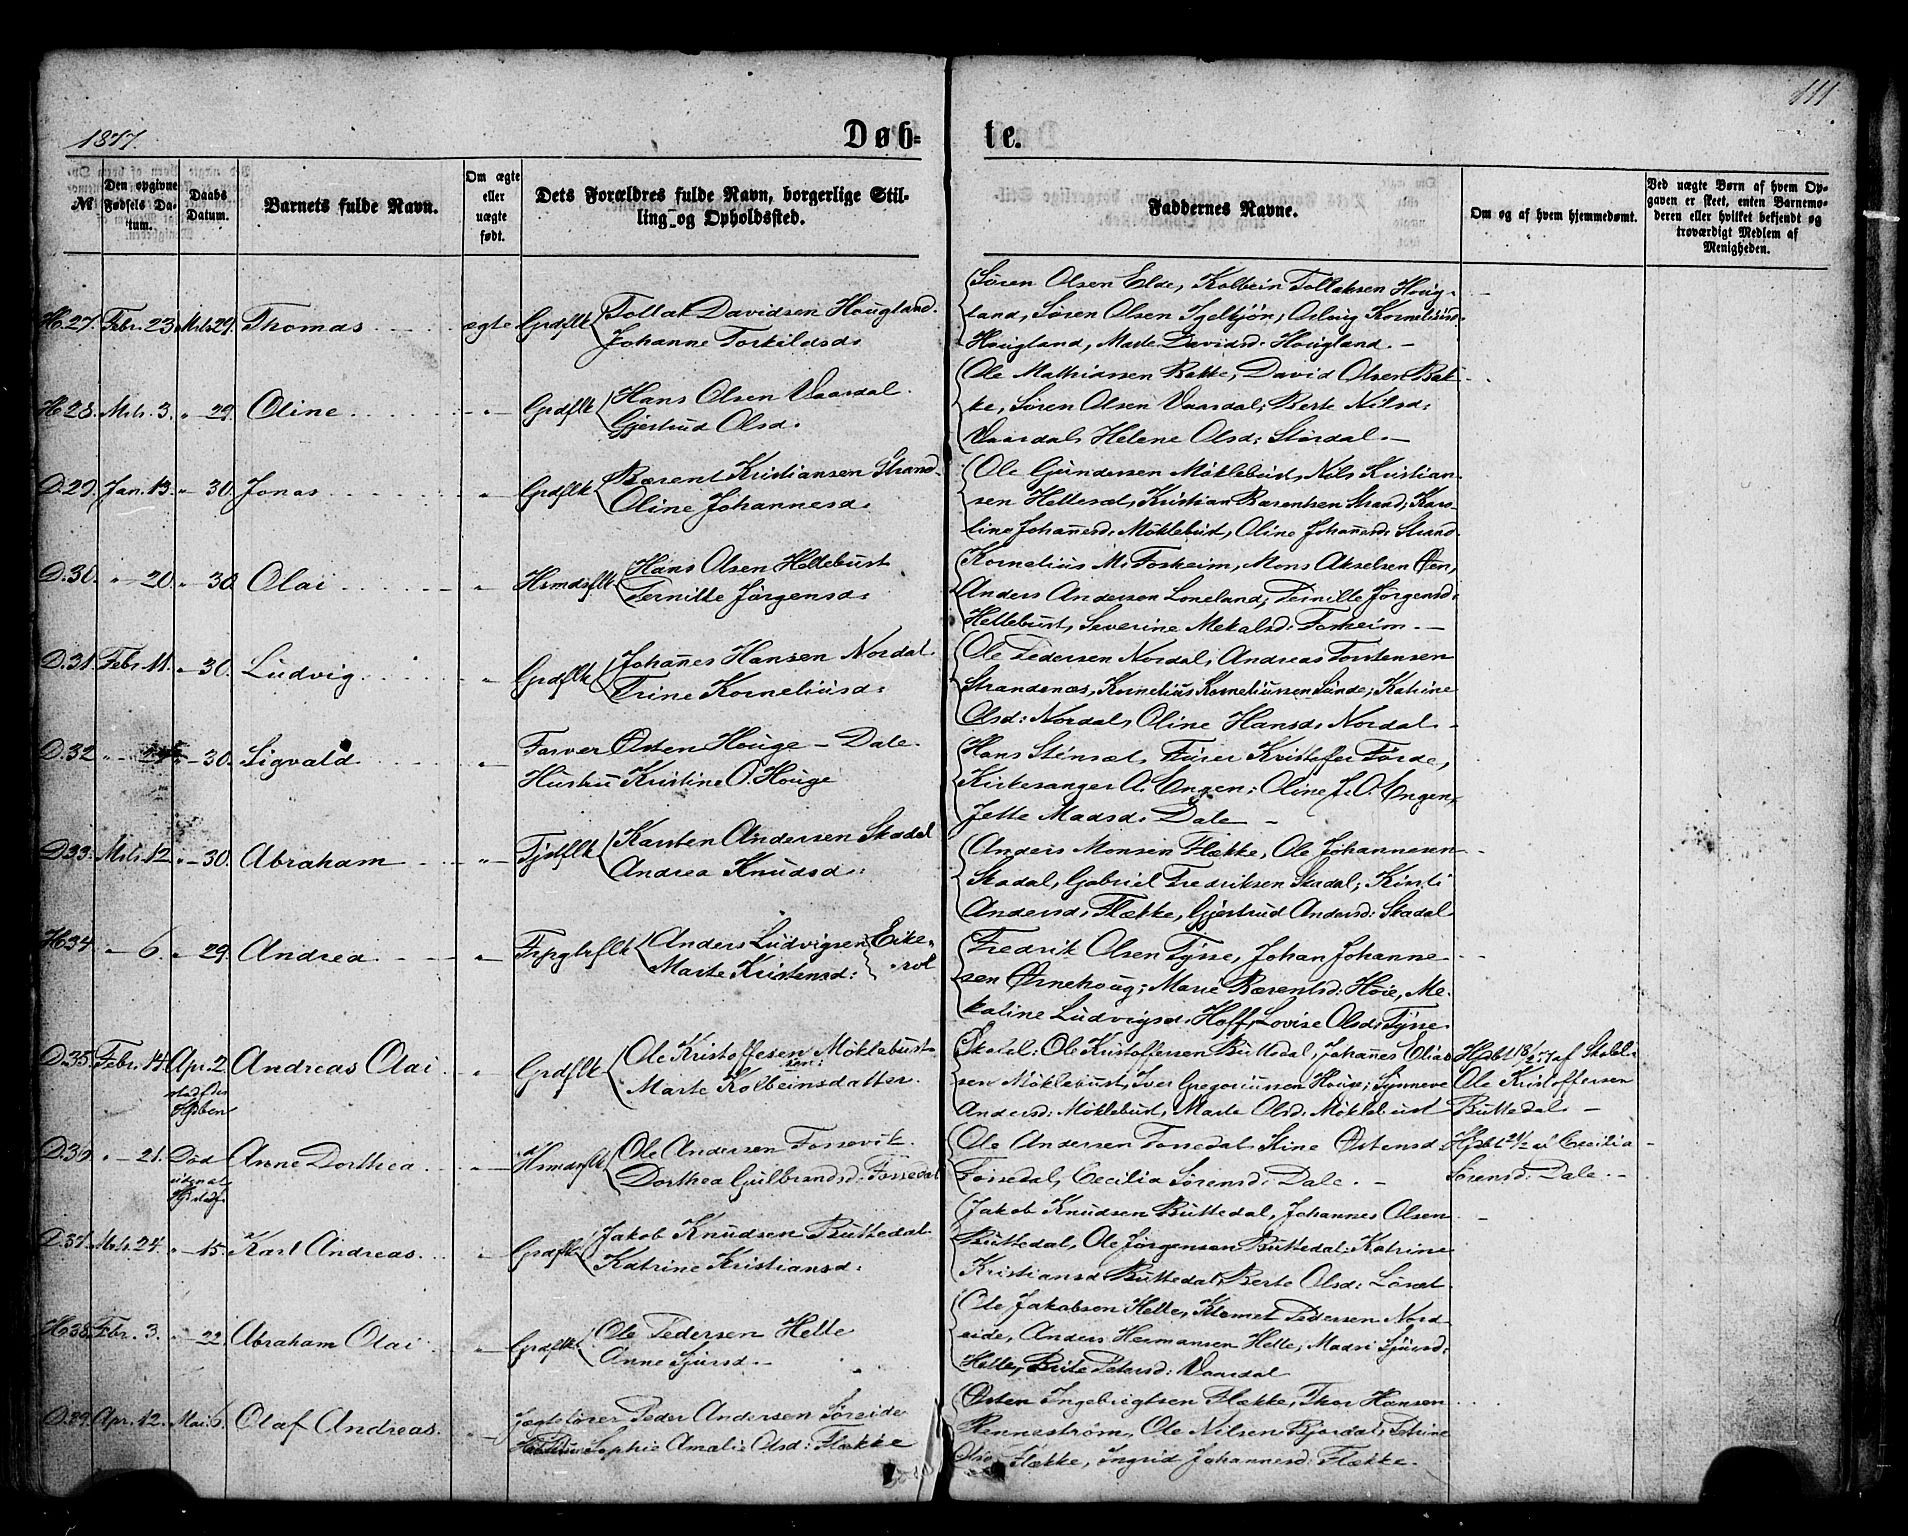 111
1877.
Døb-
te.
№
Den opgivne Fødsels Da-tum.
Daabs Datum.
Barnets fulde Navn.
Om ægte eller uægte født.
Dets Forældres fulde Navn, borgerlige Stil-
ling og Opholdssted.
Faddernes Navne.
Om og af hvem hjemmedømt.
Ved uægte Børn af hvem Op-
gaven er skeet, enten Barnemo-
deren eller hvilket bekjendt og
troværdigt Medlem af
Menigheden.
H.27. Febr. 23. Mrts 29. Thomas ægte Grdflk Tollak Davidsen Hougland.
Johanne Torkildsd:
Søren Olsen Elde, Kolbein Tollaksen Houg-
land, Søren Olsen Igeltjøn, Oslaug Kornelius:
Hougland, Marte Davidsd: Hougland. -
H.28. Mrts. 3. " 29. Oline " Grdflk Hans Olsen Vaardal.
Gjertrud Olsd:
Ole Mathiassen Bakke, David Olsen Bak-
ke, Søren Olsen Vaardal; Berte Nilsd:
Vaardal, Helene Olsd: Stordal. -
D.29. Jan. 13. " 30. Jonas " Grdflk Bærent Kristiansen Strand.
Oline Johannesd:
Ole Gundersen Møklebust, Nils Kristian-
sen Hellesæt, Kristian Bærentsen Strand; Karo-
line Johanesd: Møklebust, Oline Johanesd: Strand.
D.30. " 20. " 30. Olai " Hsmdsflk Hans Olsen Hellebust
Pernille Jørgensd:
Kornelius M. Forsheim, Mons Akselsen Øen,
Anders Andersen Loneland; Pernille Jørgensd:
Hellebust, Severine Mekalsd: Forsheim. -
D.31. Febr. 11. " 30. Ludvig " Grdflk Johanes Hansen Nordal.
Trine Korneliusd:
Ole Pedersen Nordal, Andreas Torstensen
Strandenæs, Kornelius Korneliussen Sunde; Katrine
Olsd: Nordal, Oline Hansd: Nordal -
D.32 " 30. Sigvald " Farver Østen Houge - Dale.
Hustru Kristine O. Houge
Hans Stensæt, Kristofer Førde,
Kirkesanger A. Engen; Oline J. O. Engen,
Jette Madsd: Dale -
D33. Mrts. 12. " 30. Abraham " Tjstflk Karsten Andersen Skadal
Andrea Knudsd:
Anders Monsen Flække, Ole Johannesen
Skadal, Gabriel Fredriksen Skadal; Kirsti
Andersd: Flække, Gjertrud Andersd: Skadal
H34 " 6. " 29. Andrea " Anders Ludvigsen Eike-
Marte Kristensd:
Fredrik Olsen Tysse, Johan Johanne-
sen Ørnehoug; Marie Bærentsd: Høie, Me-
kaline Ludvigsd: Hoff, Lovise Olsd: Tysse.
D.35. Febr. 14. Apr. 2. Andreas Olai " Grdflk Ole Kristoffersen Møklebust
Marte Kolbeinsdatter.
Skolel: Ole Kristoffersen Buttedal, Johanes Elias-
sen Møklebust, Iver Gregoriussen Houge; Synneve
Andersd: Møklebust, Marte Olsd: Møklebust
Hjdbt 18/2 77 af Skolel:
Ole Kristoffersen
Buttedal. -
D.36. " 21. Død Anne Dorthea " Hsmdsflk Ole Andersen Fossevik.
Dorthea Gulbrandsd: Fossedal
Ole Andersen Fossedal, Stine Østensd
Fossedal, Cecilia Sørensd: Dale. -
Hjdbt 21/2 af Cecilia
Sørensd: Dale. -
D.37. Mrts. 24. " 15. Karl Andreas. " Grdflk Jakob Knudsen Buttedal
Katrine Kristiansd:
Jakob Knudsen Buttedal, Johannes Olsen
Buttedal, Ole Jørgensen Buttedal; Katrine
Kristiansd Buttedal, Berte Olsd: Løsæt.
H.38. Febr. 3. " 22. Abraham Olai " Grdflk Ole Pedersen Helle
Anne Sjursd. -
Ole Jakobsen Helle, Klemet Pedersen Nord-
eide, Anders Hermansen Helle; Madsi Sjursd:
Helle, Brite Petersd: Vaardal
D.39. Apr. 12. Mai. 6. Olaf Andreas. " Jægtefører Peder Andersen Søreide
Hustru Sophie Amalie Olsd: Flække
Østen Ingebrigtsen Flække, Thor Hansen
Renneström, Ole Nilsen Bjordal; Stine
Olsd Flække, Ingrid Johannesd: Flække.